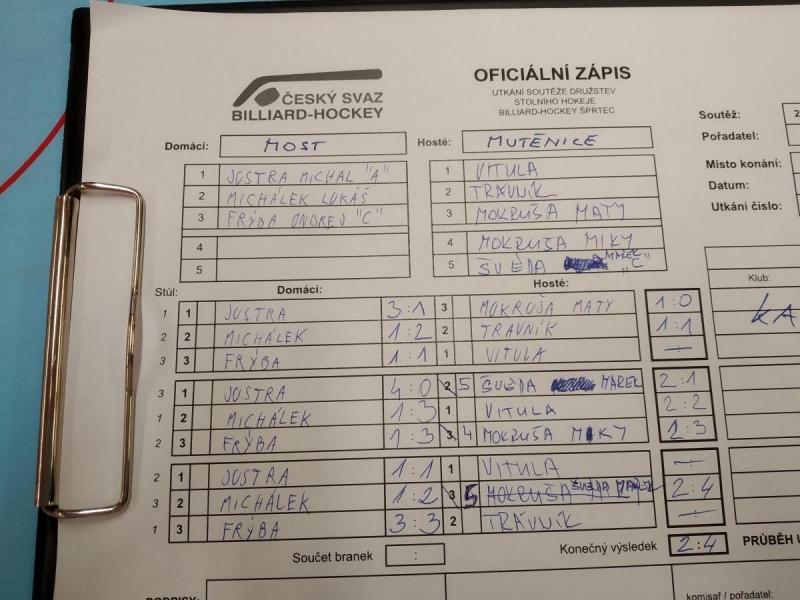 ČESKÝ SVAZ
BILLIARD-HOCKEY
OFICIÁLNÍ ZÁPIS
UTKÁNÍ SOUTĚŽE DRUŽSTEV
STOLNÍHO HOKEJE
BILLIARD-HOCKEY ŠPRTEC
Soutěž: 2
Pořadatel:
Místo konání:
Datum:
Utkání číslo:
Domácí: MOST Hosté: MUTĚNICE
1 JOSTRA MICHAL "A" 1 VITULA
2 MICHÁLEK LUKÁŠ 2 TRÁVNÍK
3 FRÝBA ONDREJ "C" 3 MOKRUŠA MATY
4 4 MOKRUŠA MIKY
5 5 ŠVĚDA MAREK "C"
Stůl: Domácí: Hosté:
Klub:
KA
1 1 JOSTRA 3:1 3 MOKRUŠA MATY 1:0
2 2 MICHÁLEK 1:2 2 TRAVNÍK 1:1
3 3 FRÝBA 1:1 1 VITULA -:-
3 1 JOSTRA 4:0 2 5 ŠVĚDA MAREK 2:1
1 2 MICHÁLEK 1:3 1 VITULA 2:2
2 3 FRÝBA 1:3 3 4 MOKRUŠA MIKY 2:3
2 1 JOSTRA 1:1 1 VITULA -:-
3 2 MICHÁLEK 1:2 3 5 MOKRUŠA ŠVĚDA MAREK 2:4
1 3 FRÝBA 3:3 2 TRÁVNÍK -:-
Součet branek : Konečný výsledek 2:4 PRŮBĚH U
PODPISY:
komisař / pořadatel: